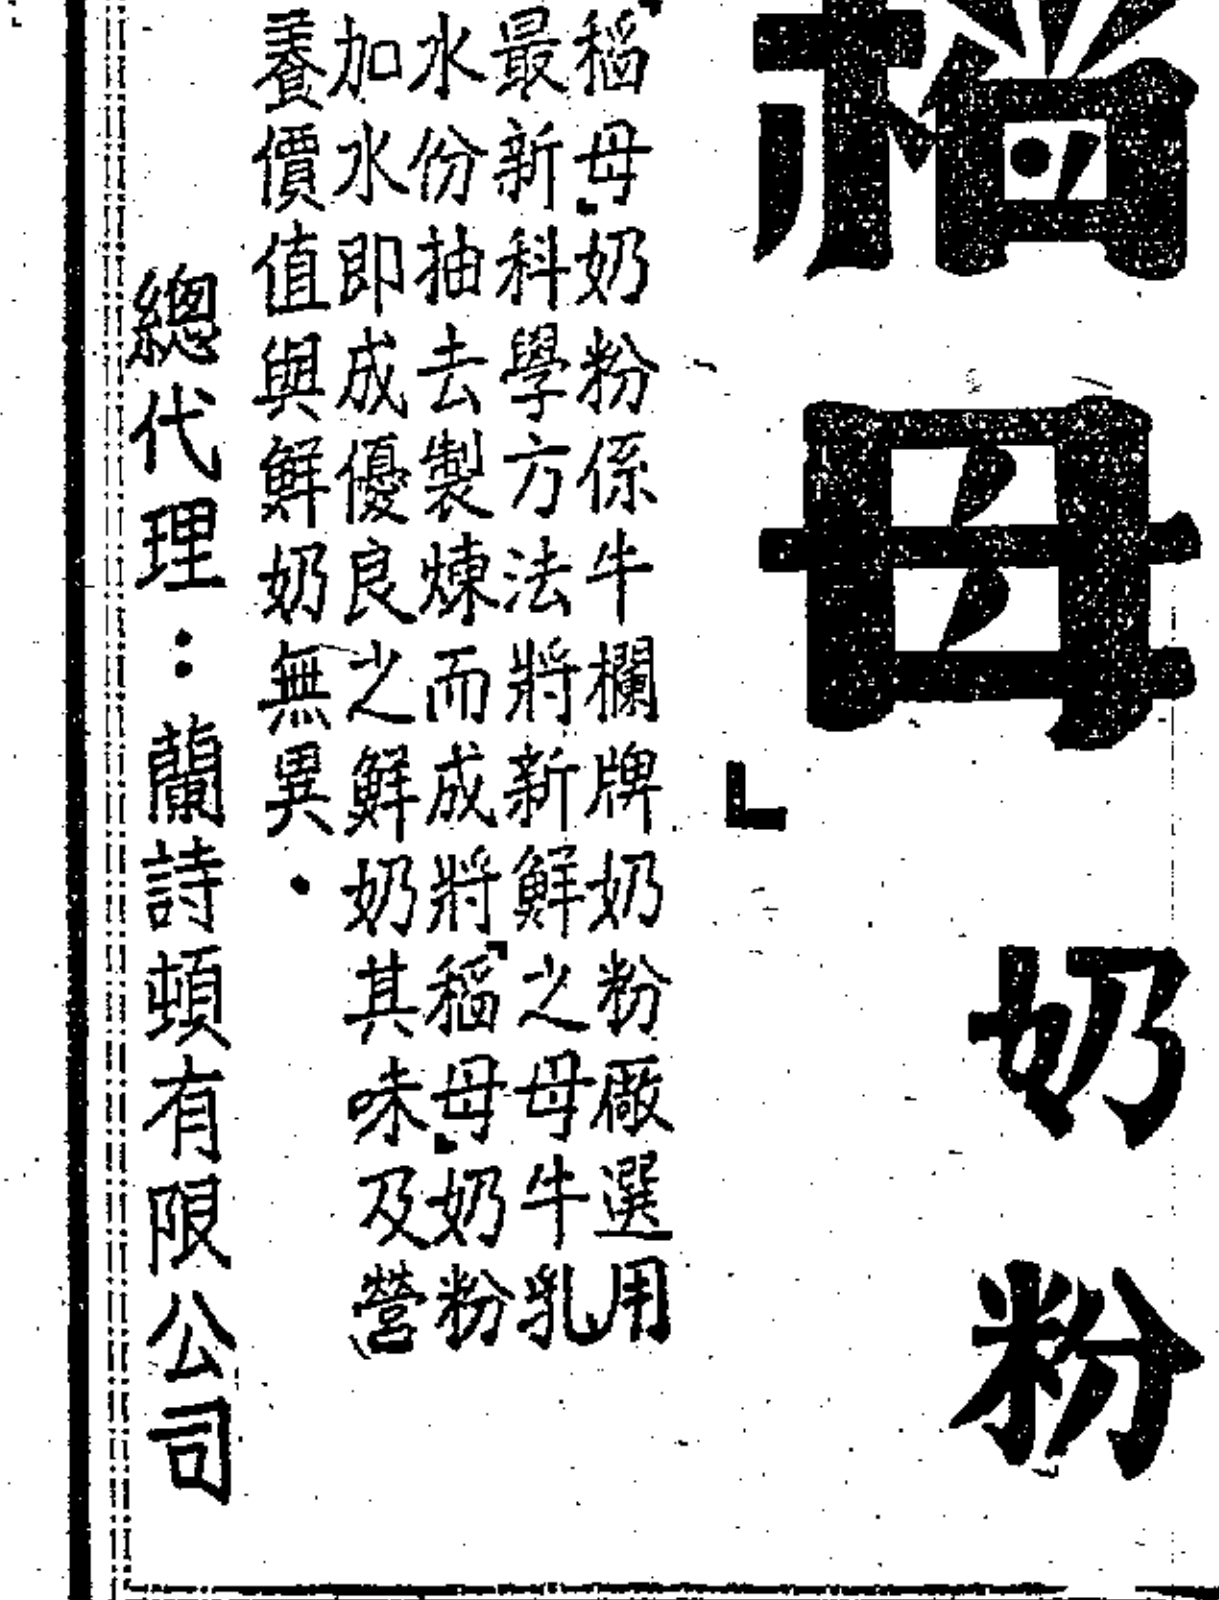 稻母」奶粉
「稻母」奶粉係牛欄牌奶粉廠選用
最新科學方法將新鮮之母牛乳
水份抽去製煉而成將「稻母」奶粉
加水即成優良之鮮奶其味及營
養價值與鮮奶無異．
總代理：蘭詩頓有限公司